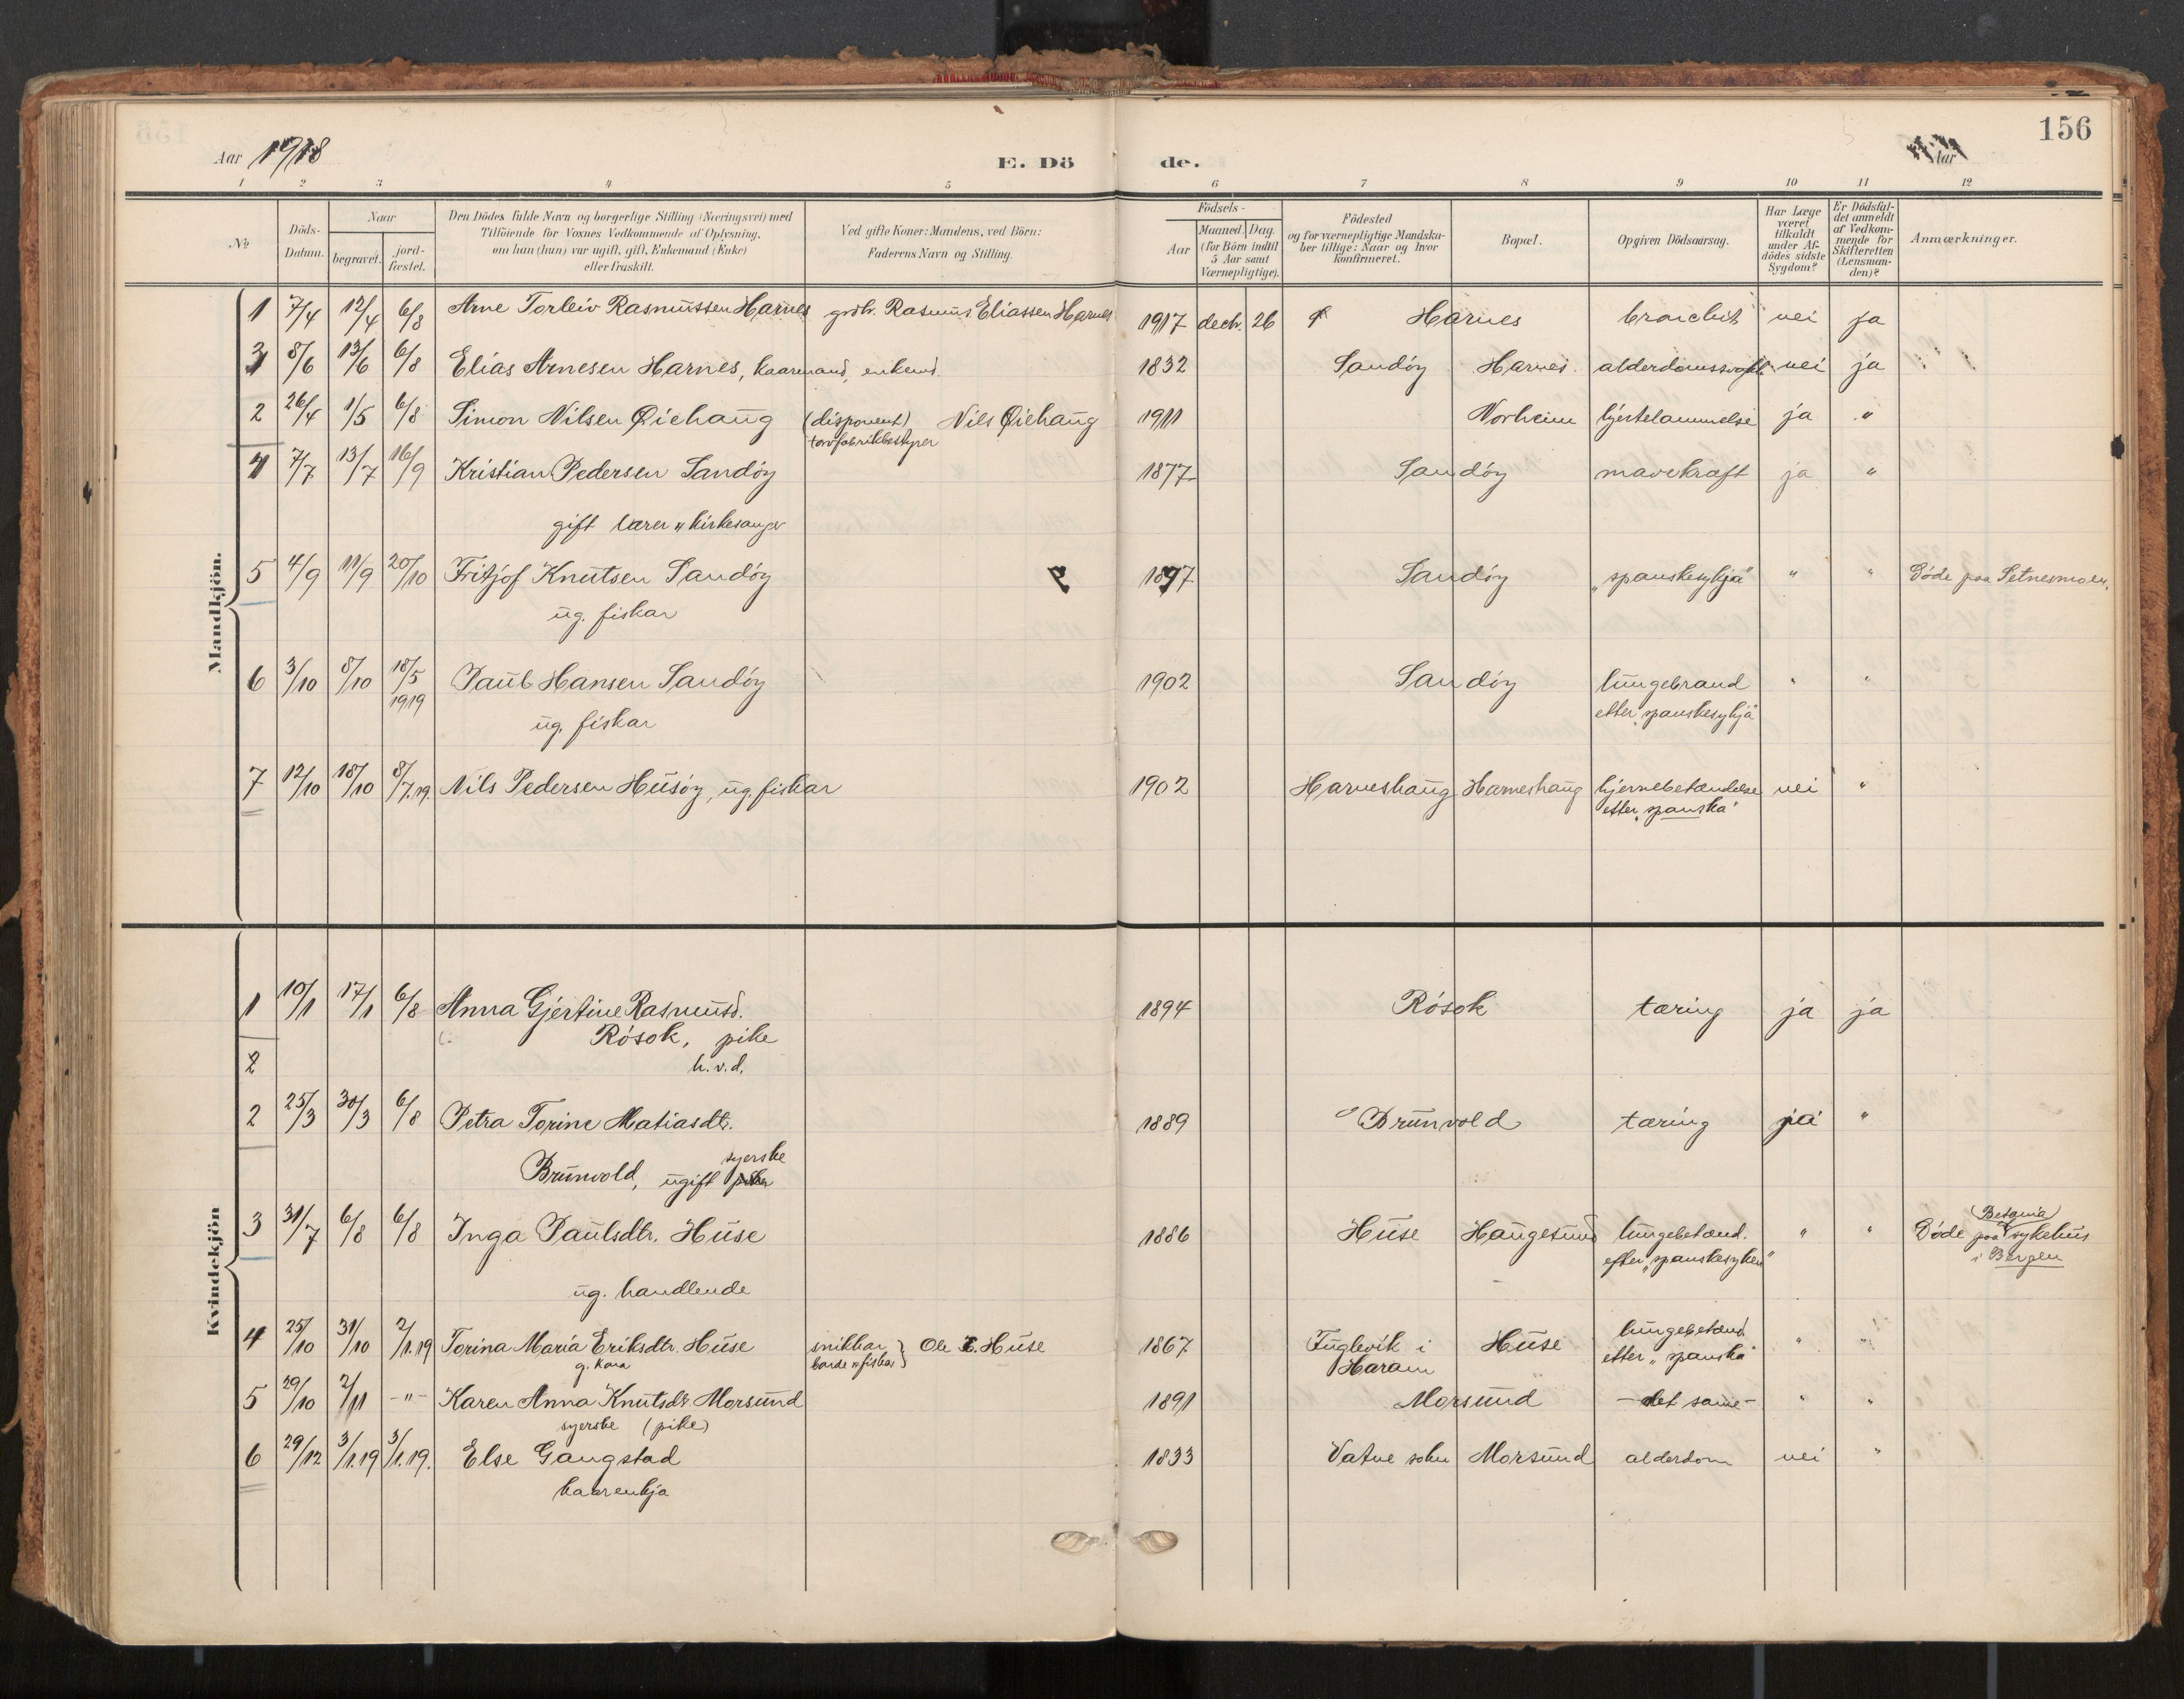 156
Aar 1918
E. Dö de.
Aar
1 2 3 4 5 6 7 8 9 10 11 12
No
Döds-Datum.
Naar
begravet.
jord-fæstet.
Den Dödes fulde Navn og borgerlige Stilling (Næringsvei) med
Tilföiende for Voxnes Vedkommende af Oplysning,
om han (hun) var ugift, gift, Enkemand (Enke)
eller fraskilt.
Ved gifte Koner: Mandens, ved Börn:
Faderens Navn og Stilling.
Födsels-
Aar
Maaned. Dag.
(for Börn indtil
5 Aar samt
Værnepligtige).
Födested
og for værnepligtige Mandska-
ber tillige: Naar og hvor
konfirmeret.
Bopæl.
Opgiven Dödsaarsag.
Har Læge
været
tilkaldt
under Af-
dödes sidste
Sygdom?
Er Dödsfal-
det anmeldt
af Vedkom-
mende for
Skifteretten
(Lensman-
den)?
Anmærkninger.
Mandkjön.
1 7/4 12/4 6/8 Arne Torleiv Rasmussen Harnes grbr. Rasmus Eliassen Harnes 1917 decbr. 26 Harnes bronchit nei ja
3 8/6 13/6 6/8 Elias Arnesen Harnes, kaarmand, enkemd. 1832 Sandöy Harnes. alderdomssvagh. nei ja
2 26/4 1/5 6/8 Simon Nilsen Qiehaug (disponent) Nils Qiehaug 1911 Norheim hjertelammelse ja "
torvfabrikbestyrer
4 7/7 13/7 16/9 Kristian Pedersen Sandöy 1877 Sandöy mavekraft ja "
gift lærer & kirkesanger
5 4/9 11/9 20/10 Fritjof Knutsen Sandöy 1897 Sandöy "spanskesykja" " " Döde paa Setnesmoen.
ug. fiskar
6 3/10 8/10 18/5 1919 Paul Hansen Sandöy 1902 Sandöy lungebrand " "
etter "spanskesykja"
ug. fiskar
7 12/10 18/10 8/7.19. Nils Pedersen Husöy, ug. fiskar 1902 Harneshaug Harneshaug hjernebetændelse nei "
etter "spanska"
Kvindekjön
1 10/1 17/1 6/8 Anna Gjertine Rasmusd. 1894 Rösok tæring ja ja
Rösok, pike
2 h.v.d.
2 25/3 30/3 6/8 Petra Torine Matiasdtr. 1889 Brunvold tæring ja "
syerske
Brunvold, ugift
3 31/7 6/8 6/8 Inga Paulsdtr. Huse 1886 Huse Haugesund lungebetænd. " " Döde paa (Betania) sykehus
efter "spanskesyken" i Bergen
ug. handlende
4 25/10 31/10 2/1.19 Torina Maria Eriksdtr. Huse snikkar Ole E. Huse 1867 Fuglevik i Huse lungebetænd. " "
g. kona baade & fiskar Haram etter "spanska"
5 29/10 2/11 -"- Karen Anna Knutsdr Morsund 1891 Morsund - det same - " "
syerske (pike)
6 29/12 3/1.19 3/1.19. Else Gangstad 1833 Vatne sokn Morsund alderdom nei "
kaarenkja